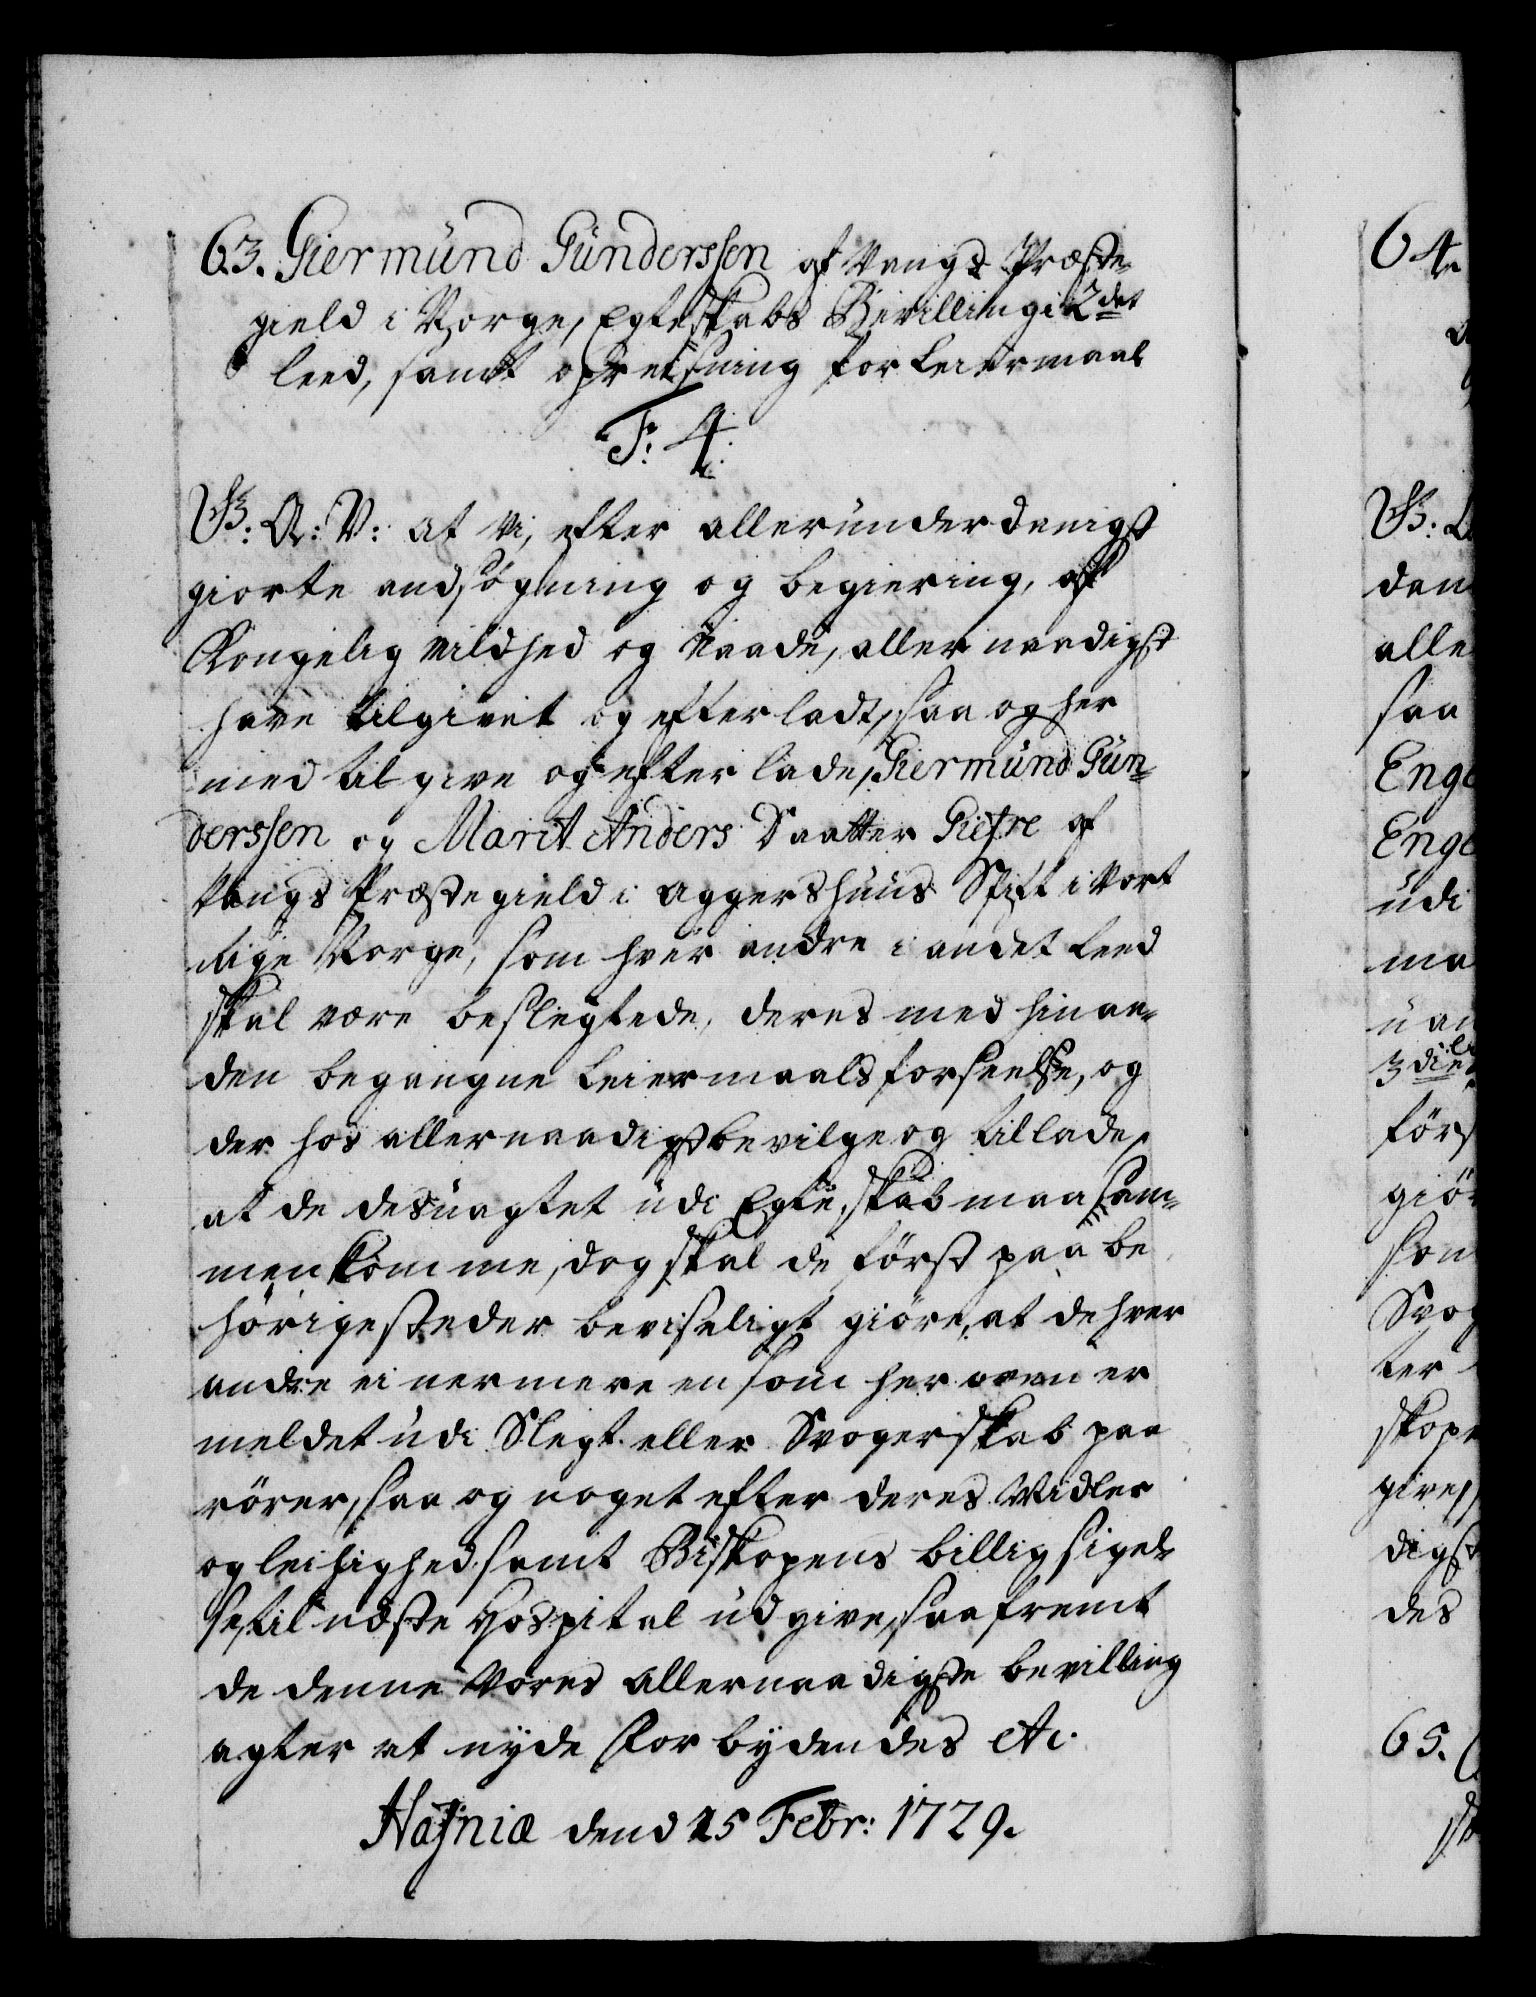 63. Giermund Gunderssen af Vangs Præste-
gield i Norge, Egteskabs Bevilling i 2det
leed, samt opreisning for Leiermaal
F. 4.
G. A: V: at Vi, efter allerunderdanigst
giorte andsøgning og begiering, af
Kongelig Mildhed og Naade, allernaadigst
have tilgivet og efterladt, saa og her
med tilgive og efterlade, Giermund Gun-
derssen og Marit Anders Daatter af
Vangs Præstegield i Aggershuus Stift i Vort
Rige Norge, som hver andre i andet Leed
skal være beslegtede, deres med hinan-
den begangne Leiermaals forseelse, og
der hos allernaadigst bevilge og tillade,
at de desuagtet udi Egteskab maa sam-
menkomme, dog skal de først paa be
hørige steder beviseligt giøre, at de hver
andre ei nermere en som her oven er
meldet udi Slegt eller Svogerskab paa
rører, saa og noget efter deres Midler
og leilighed samt Biskopens billig sigel-
se til næste Hospital udgive, saafremt
de denne Vores allernaadigste bevilling
agter at nyde Forbydendes etc.
Hafniæ dend 25 Febr: 1729.
64.
den
alle
saa
Enge
Enge
udi
ma
3die
først
giør
Svog
ter
skope
give,
digst
des
65.